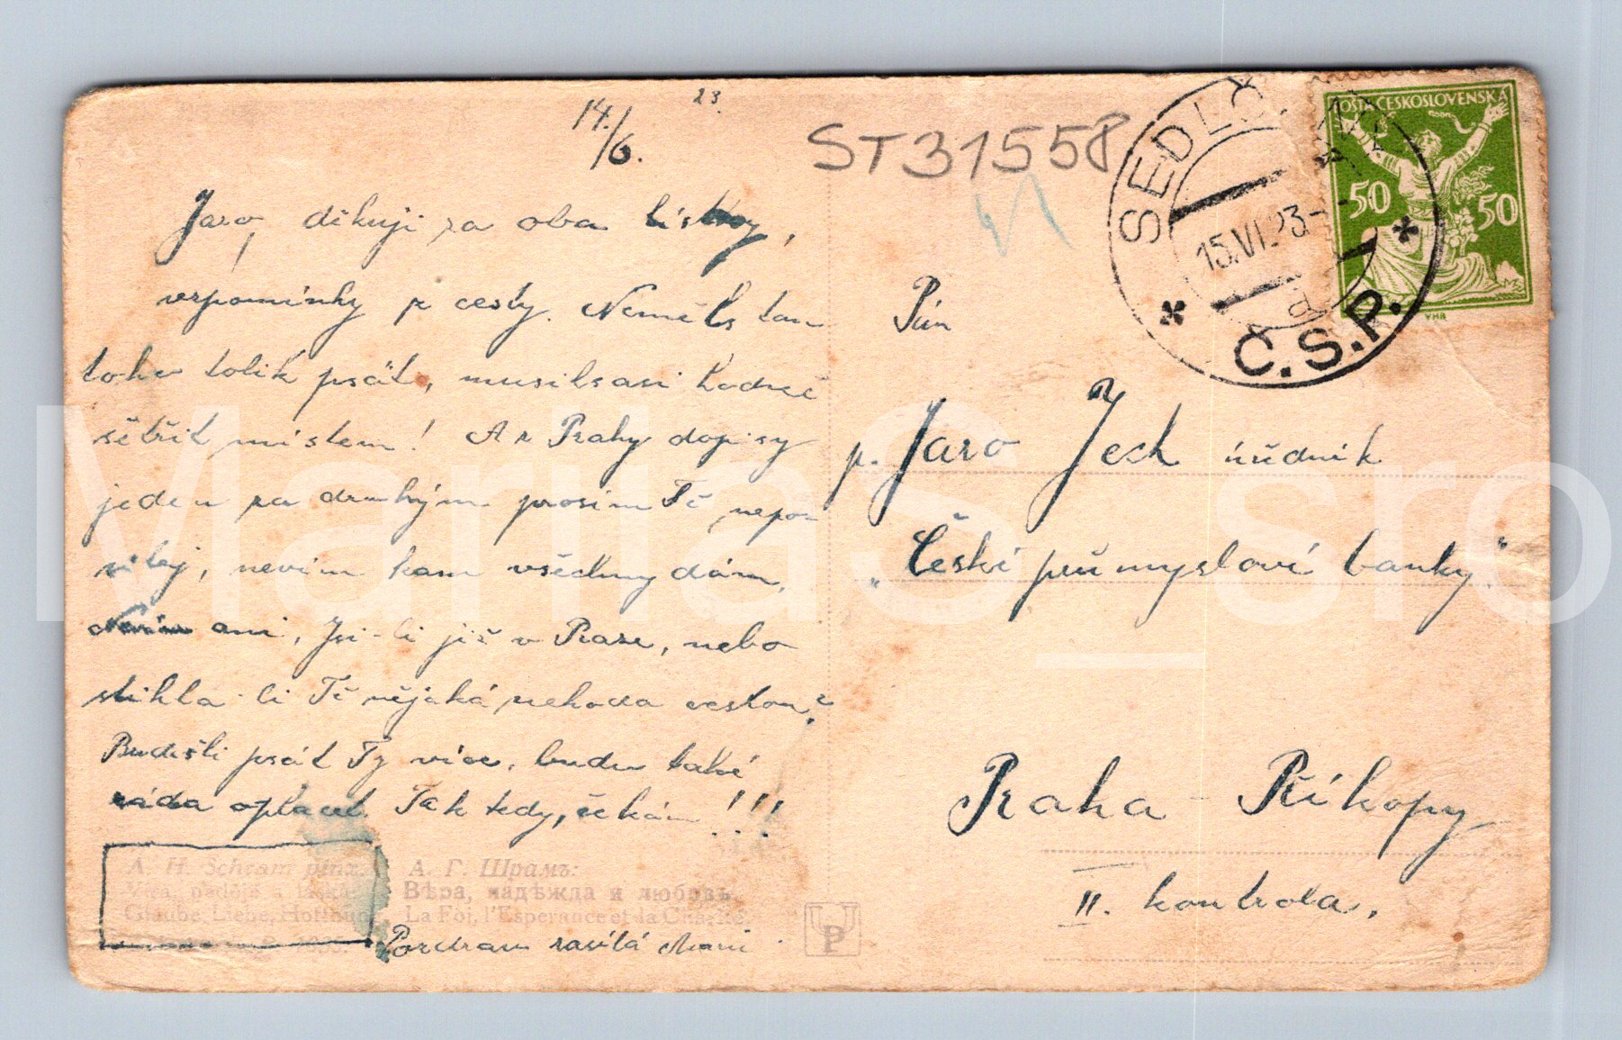 14./6. 23.
ST31558
SEDLČ
15.VI.23
Č.S.P.
POŠTA ČESKOSLOVENSKÁ
50 50
Jaro, děkuji za oba lístky,
vzpomínky z cesty. Neměls tam
toho tolik psát, musilsasi hodně
šetřit místem! A z Prahy dopisy
jeden za druhým prosím Tě, nepo-
sílej, nevím kam všechny dám.
Nevím ani, Jsi-li již v Praze, nebo
stihla-li Tě nějaká nehoda cestou?
Budeš-li psát Ty více, budu také
ráda oplacet. Tak tedy, čekám!!!
Pozdrav zasílá Mani
A. H. Schram pinx. А. Г. Шрамъ:
Víra, naděje a láska. Вѣра, надѣжда и любовь.
Glaube, Liebe, Hoffnung. La Foi, l'Esperance et la Charité.
UP
Pán
p. Jaro Jech úředník
„České průmyslové banky."
Praha - Příkopy
II. kontrola.
MarijaS_sro